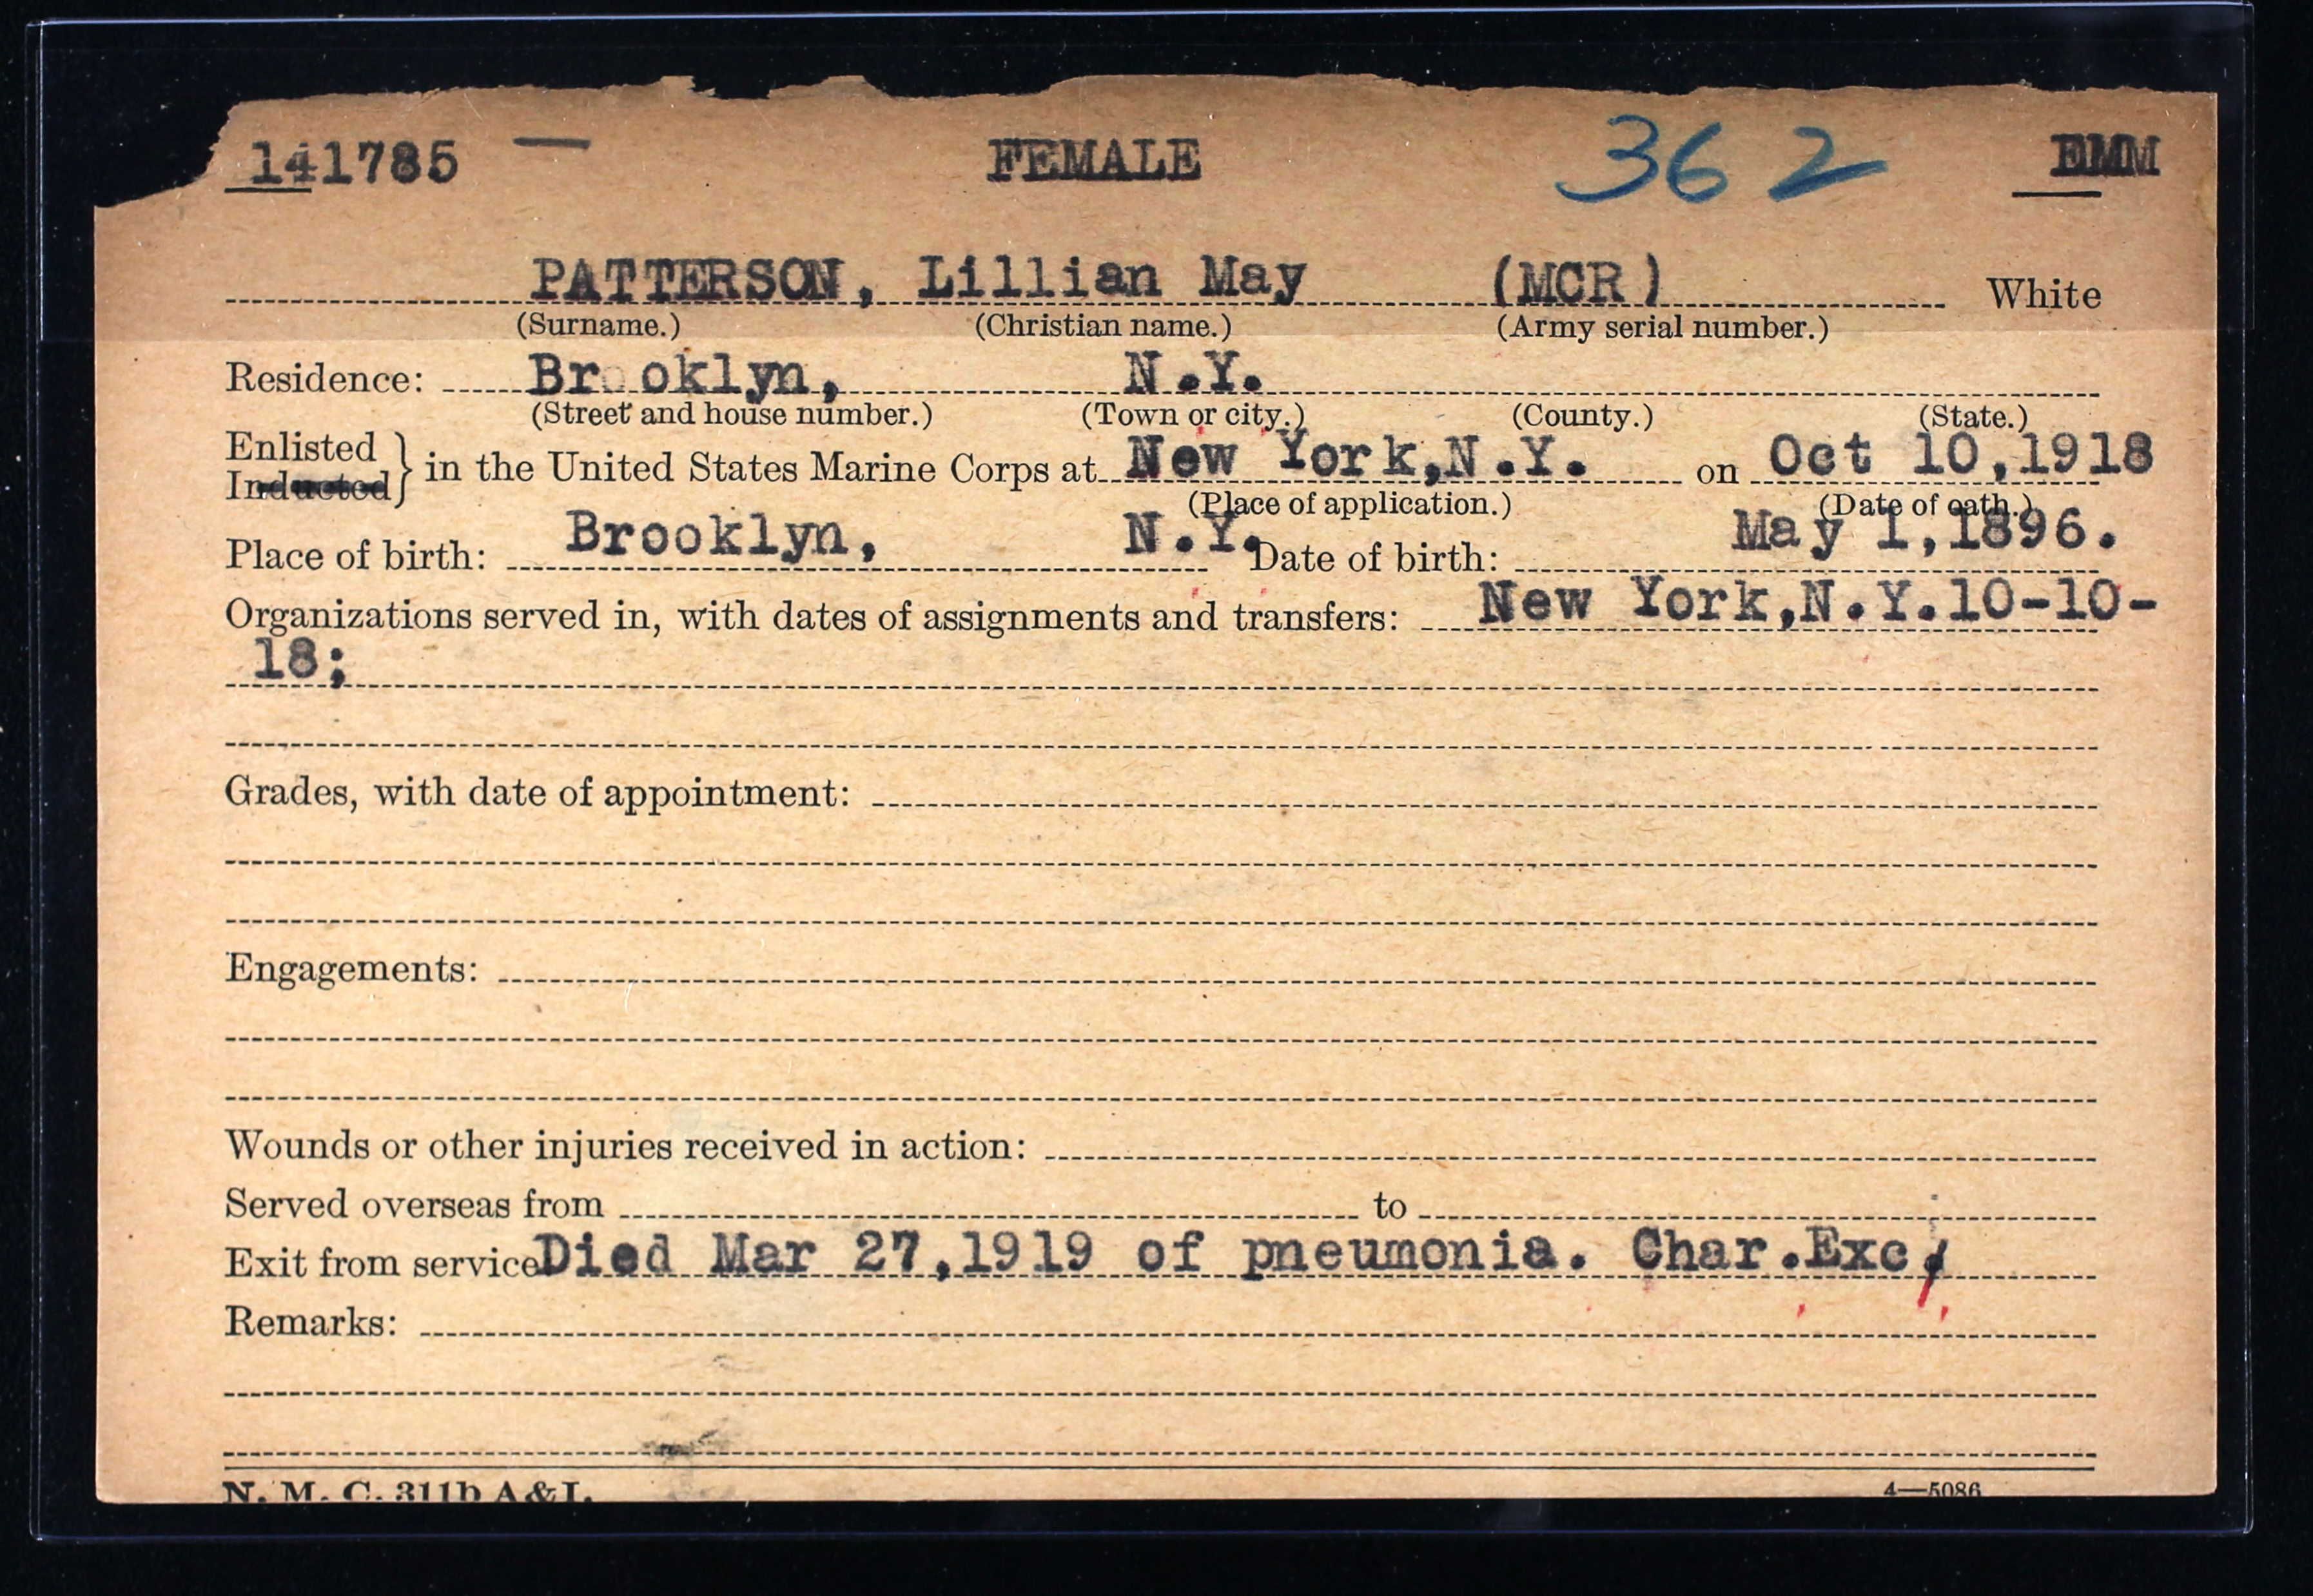 141785 — FEMALE 362 EMM
PATTERSON, Lillian May (MCR) White
(Surname.) (Christian name.) (Army serial number.)
Residence: Brooklyn, N.Y.
(Street and house number.) (Town or city.) (County.) (State.)
Enlisted
Inducted } in the United States Marine Corps at New York,N.Y. on Oct 10,1918
(Place of application.) (Date of oath.)
Place of birth: Brooklyn, N.Y. Date of birth: May 1,1896.
Organizations served in, with dates of assignments and transfers: New York,N.Y.10-10-
18;
Grades, with date of appointment:
Engagements:
Wounds or other injuries received in action:
Served overseas from to
Exit from service Died Mar 27,1919 of pneumonia. Char.Exc;
Remarks:
N. M. C. 311b A&I. 4—5086